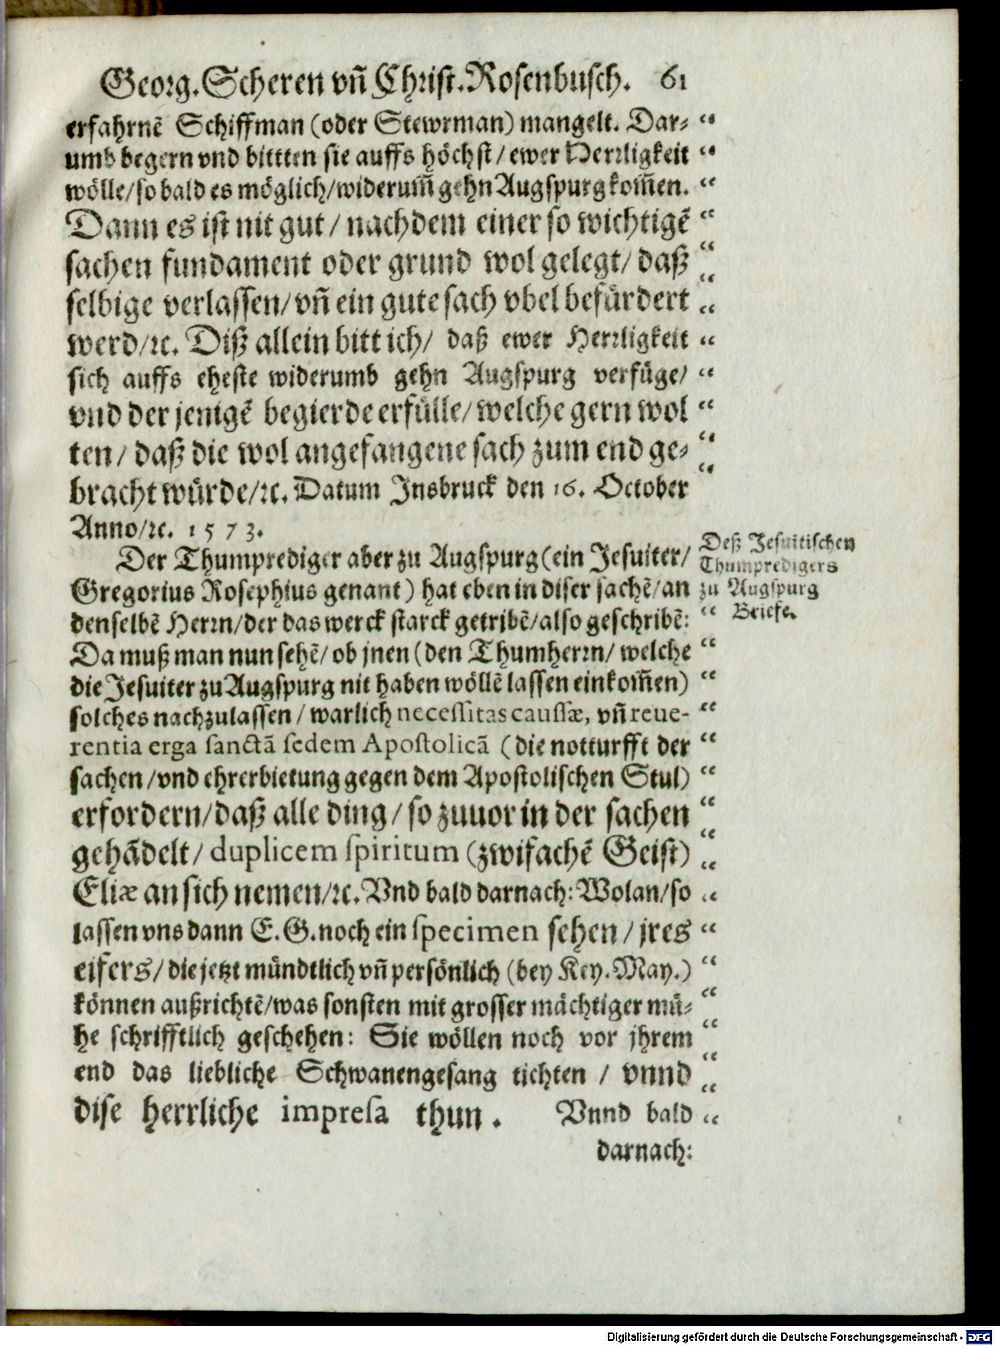 Georg. Scheren vñ Christ. Rosenbusch. 61
erfahrnẽ Schiffman (oder Stewrman) mangelt. Dar- “
umb begern vnd bittten sie auffs höchst / ewer Herrligkeit “
wölle / so bald es möglich / widerum̃ gehn Augspurg kom̃en. “
Dann es ist nit gut / nachdem einer so wichtigẽ “
sachen fundament oder grund wol gelegt / daß “
selbige verlassen / vñ ein gute sach vbel befürdert “
werd / ꝛc. Diß allein bitt ich / daß ewer Herrligkeit “
sich auffs eheste widerumb gehn Augspurg verfüge / “
vnd der jenigẽ begierde erfülle / welche gern wol “
ten / daß die wol angefangene sach zum end ge- “
bracht würde / ꝛc. Datum Jnsbruck den 16. October “
Anno / ꝛc. 1573.
Der Thumprediger aber zu Augspurg (ein Jesuiter /
Gregorius Rosephius genant) hat eben in diser sachẽ / an
denselbẽ Herrn / der das werck starck getribẽ / also geschribẽ: “
Deß Jesuitischen
Thumpredigers
zu Augspurg
Briefe.
Da muß man nun sehẽ / ob jnen (den Thumherrn / welche “
die Jesuiter zu Augspurg nit haben wöllẽ lassen einkom̃en) “
solches nachzulassen / warlich necessitas caussæ, vñ reue- “
rentia erga sanctã sedem Apostolicã (die notturfft der “
sachen / vnd ehrerbietung gegen dem Apostolischen Stul) “
erfordern / daß alle ding / so zuuor in der sachen “
gehãdelt / duplicem spiritum (zwifachẽ Geist) “
Eliæ an sich nemen / ꝛc. Vnd bald darnach: Wolan / so “
lassen vns dann E. G. noch ein specimen sehen / jres “
eifers / die jetzt mündtlich vñ persönlich (bey Key. May.) “
können außrichtẽ / was sonsten mit grosser mächtiger mü- “
he schrifftlich geschehen: Sie wöllen noch vor jhrem “
end das liebliche Schwanengesang tichten / vnnd “
dise herrliche impresa thun. Vnnd bald “
darnach:
Digitalisierung gefördert durch die Deutsche Forschungsgemeinschaft - DFG